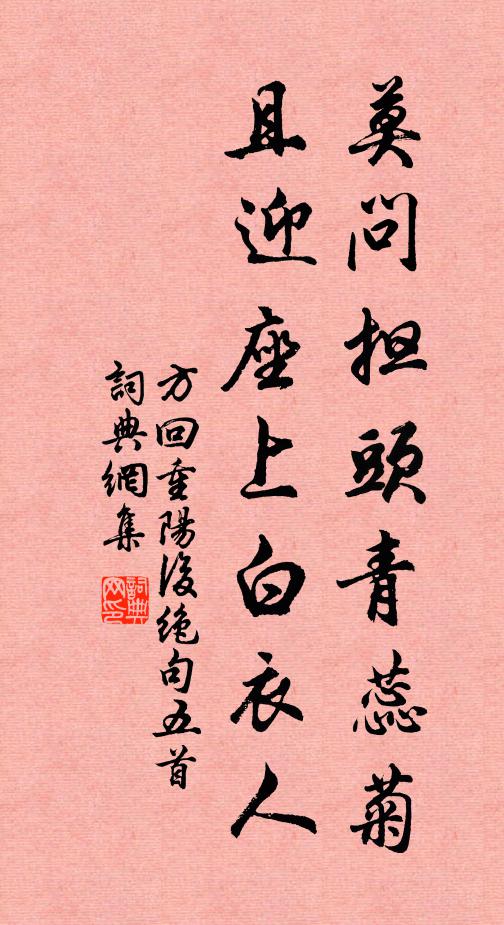 莫問担頭青蕊菊
且迎座上白衣人
方回重陽後絶句五首
詞典網集
詞典网印